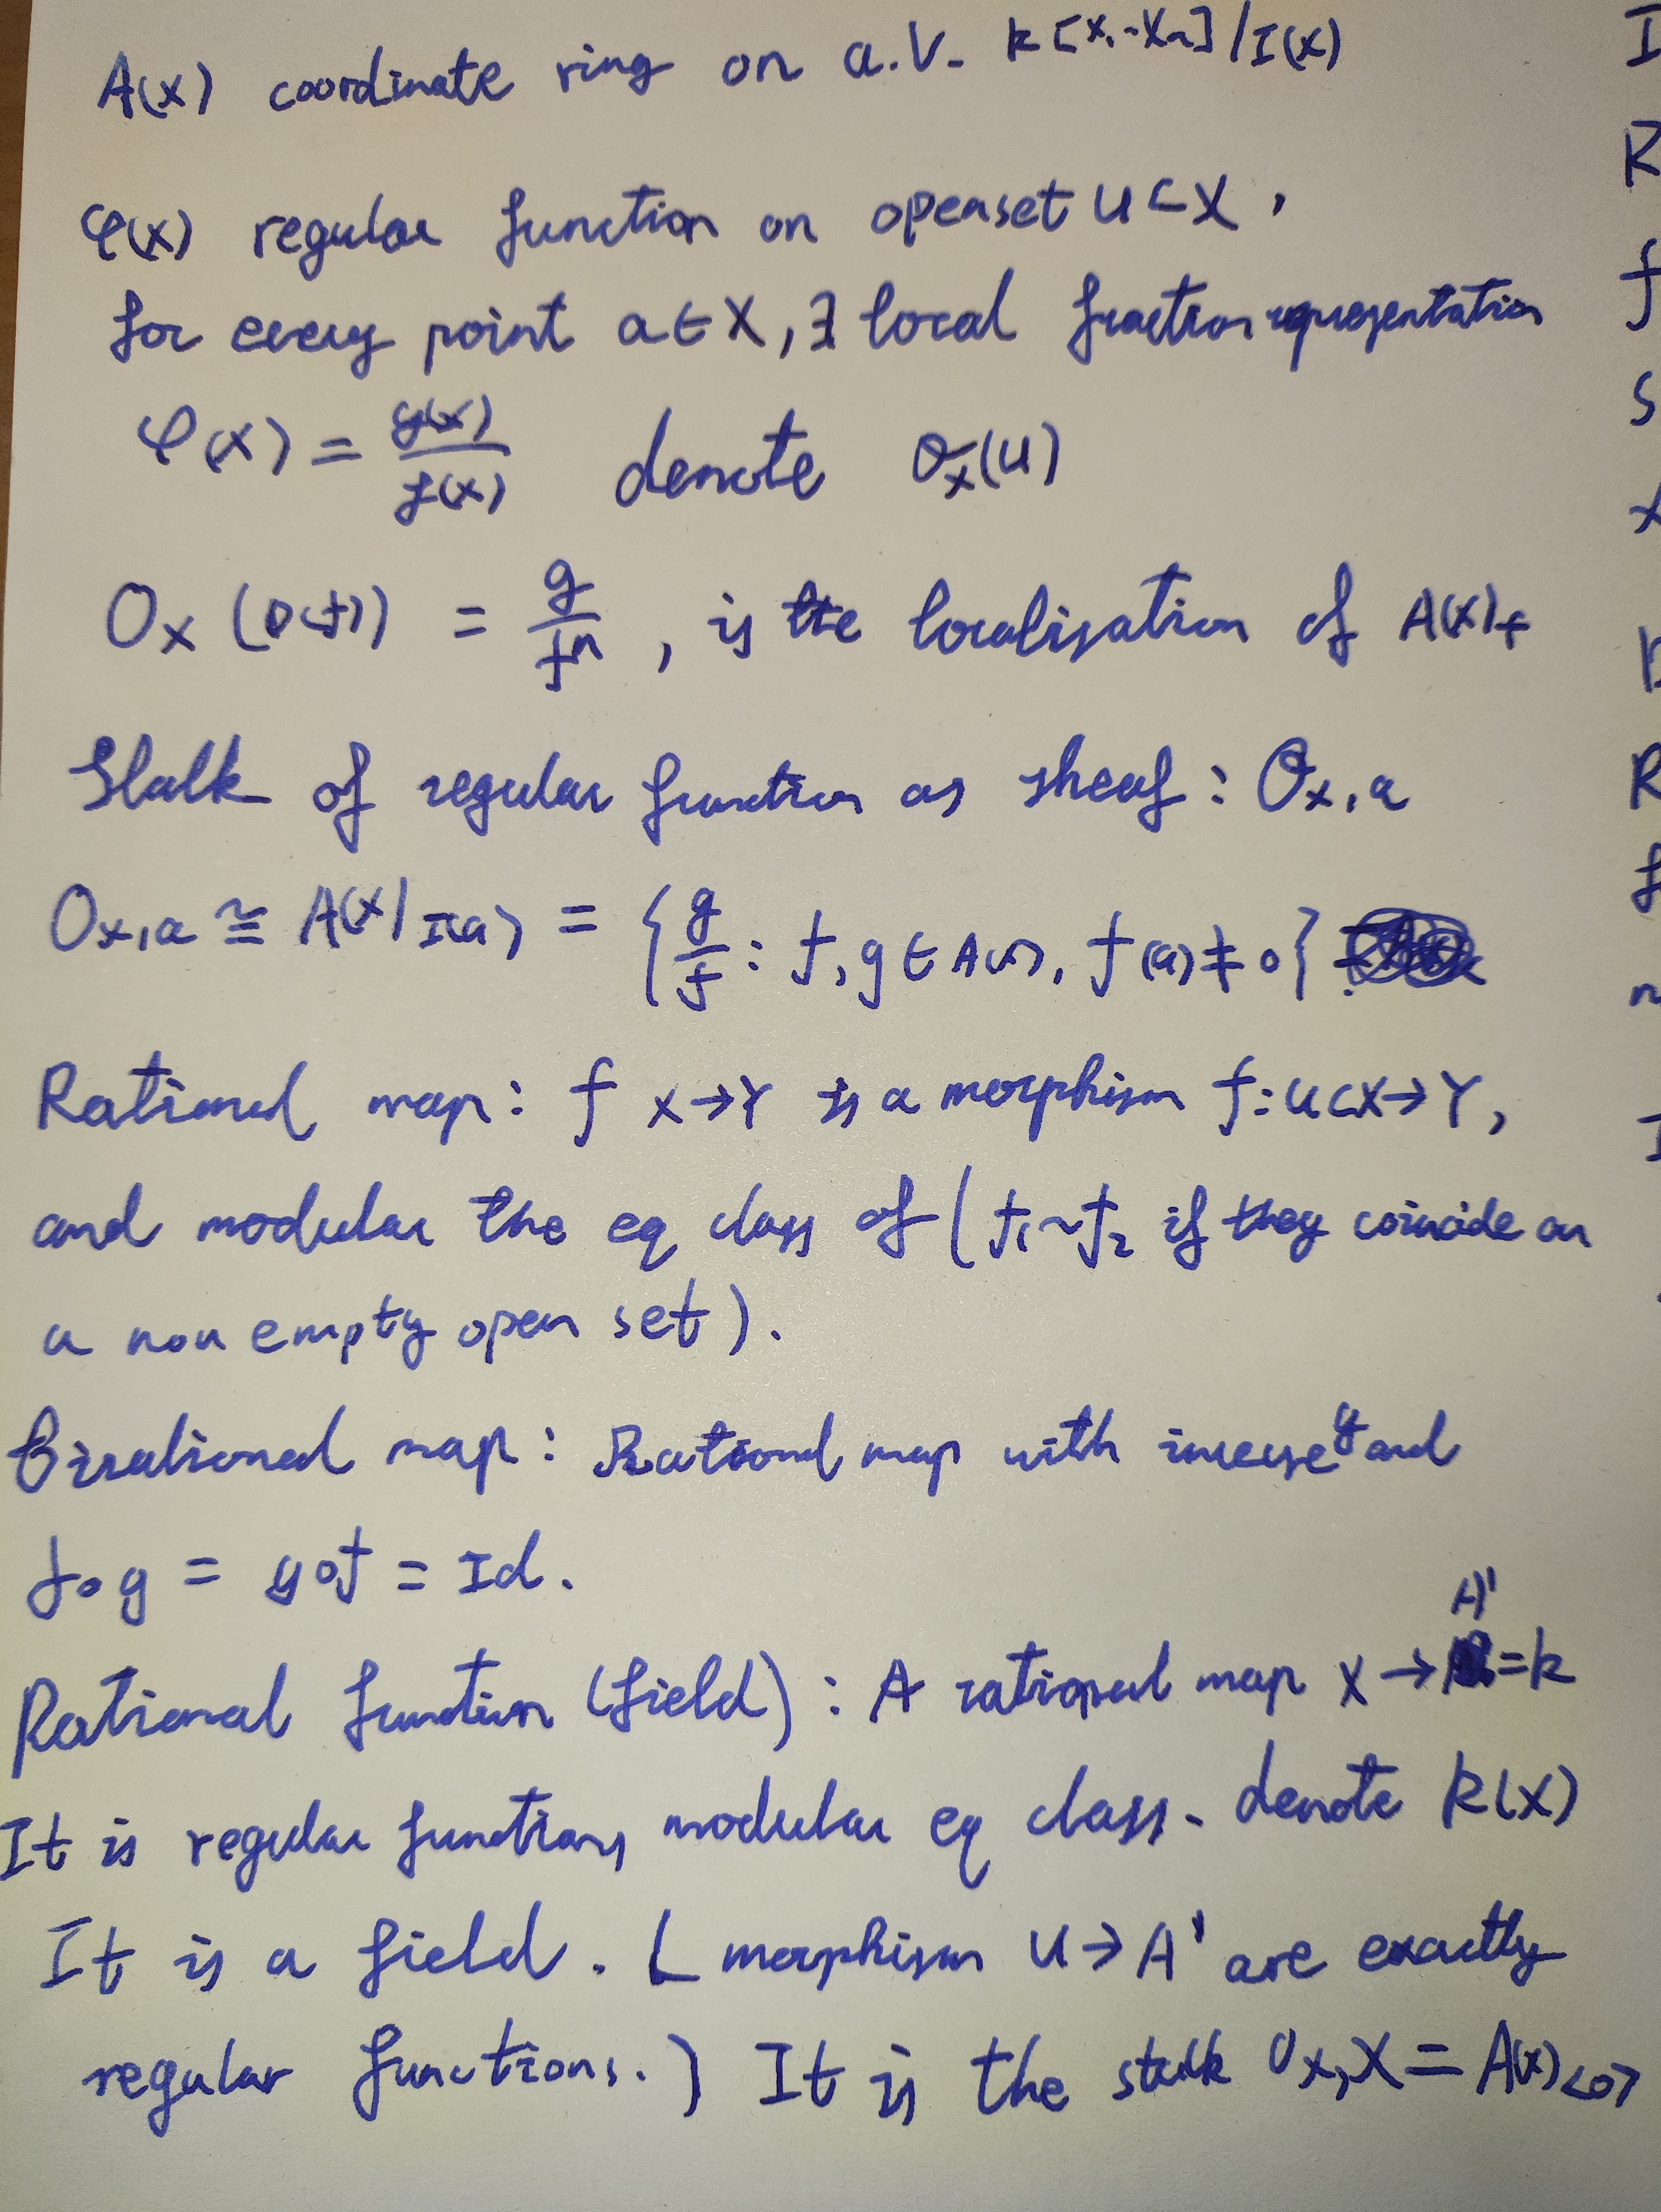 A(x) coordinate ring on a.V. k[x₁~Xn]/I(x)
φ(x) regular function on openset U⊂X,
for every point a∈X, ∃ local fraction representation
φ(x) = g(x)/f(x) denote O_X(U)
O_X (D(f)) = g/fⁿ, is the localisation of A(X)_f
Stalk of regular function as sheaf: O_X,a
O_X,a ≅ A(X)_I(a) = {g/f : f, g ∈ A(x), f(a) ≠ 0}
Rational map: f X→Y is a morphism f: U⊂X→Y,
and modular the eq class of (f₁~f₂ if they coincide on
a non empty open set).
Birational map: Rational map with inverse g and
f∘g = g∘f = Id.
Rational function (field): A rational map X → A¹ = k
It is regular functions modular eq class. denote K(X)
It is a field. ( morphism U→A¹ are exactly
regular functions.) It is the stalk O_X,X = A(x)<0>
I
R
f
S
x
R
f
n
I